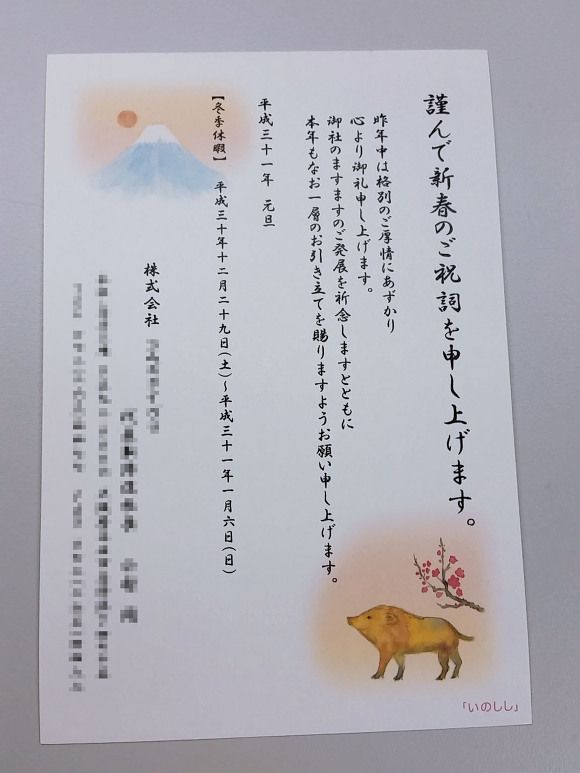 謹んで新春のご祝詞を申し上げます。
昨年中は格別のご厚情にあずかり
心より御礼申し上げます。
御社のますますのご発展を祈念しますとともに
本年もなお一層のお引き立てを賜りますようお願い申し上げます。
平成三十一年 元旦
【冬季休暇】 平成三十年十二月二十九日(土)～平成三十一年一月六日(日)
株式会社
「いのしし」